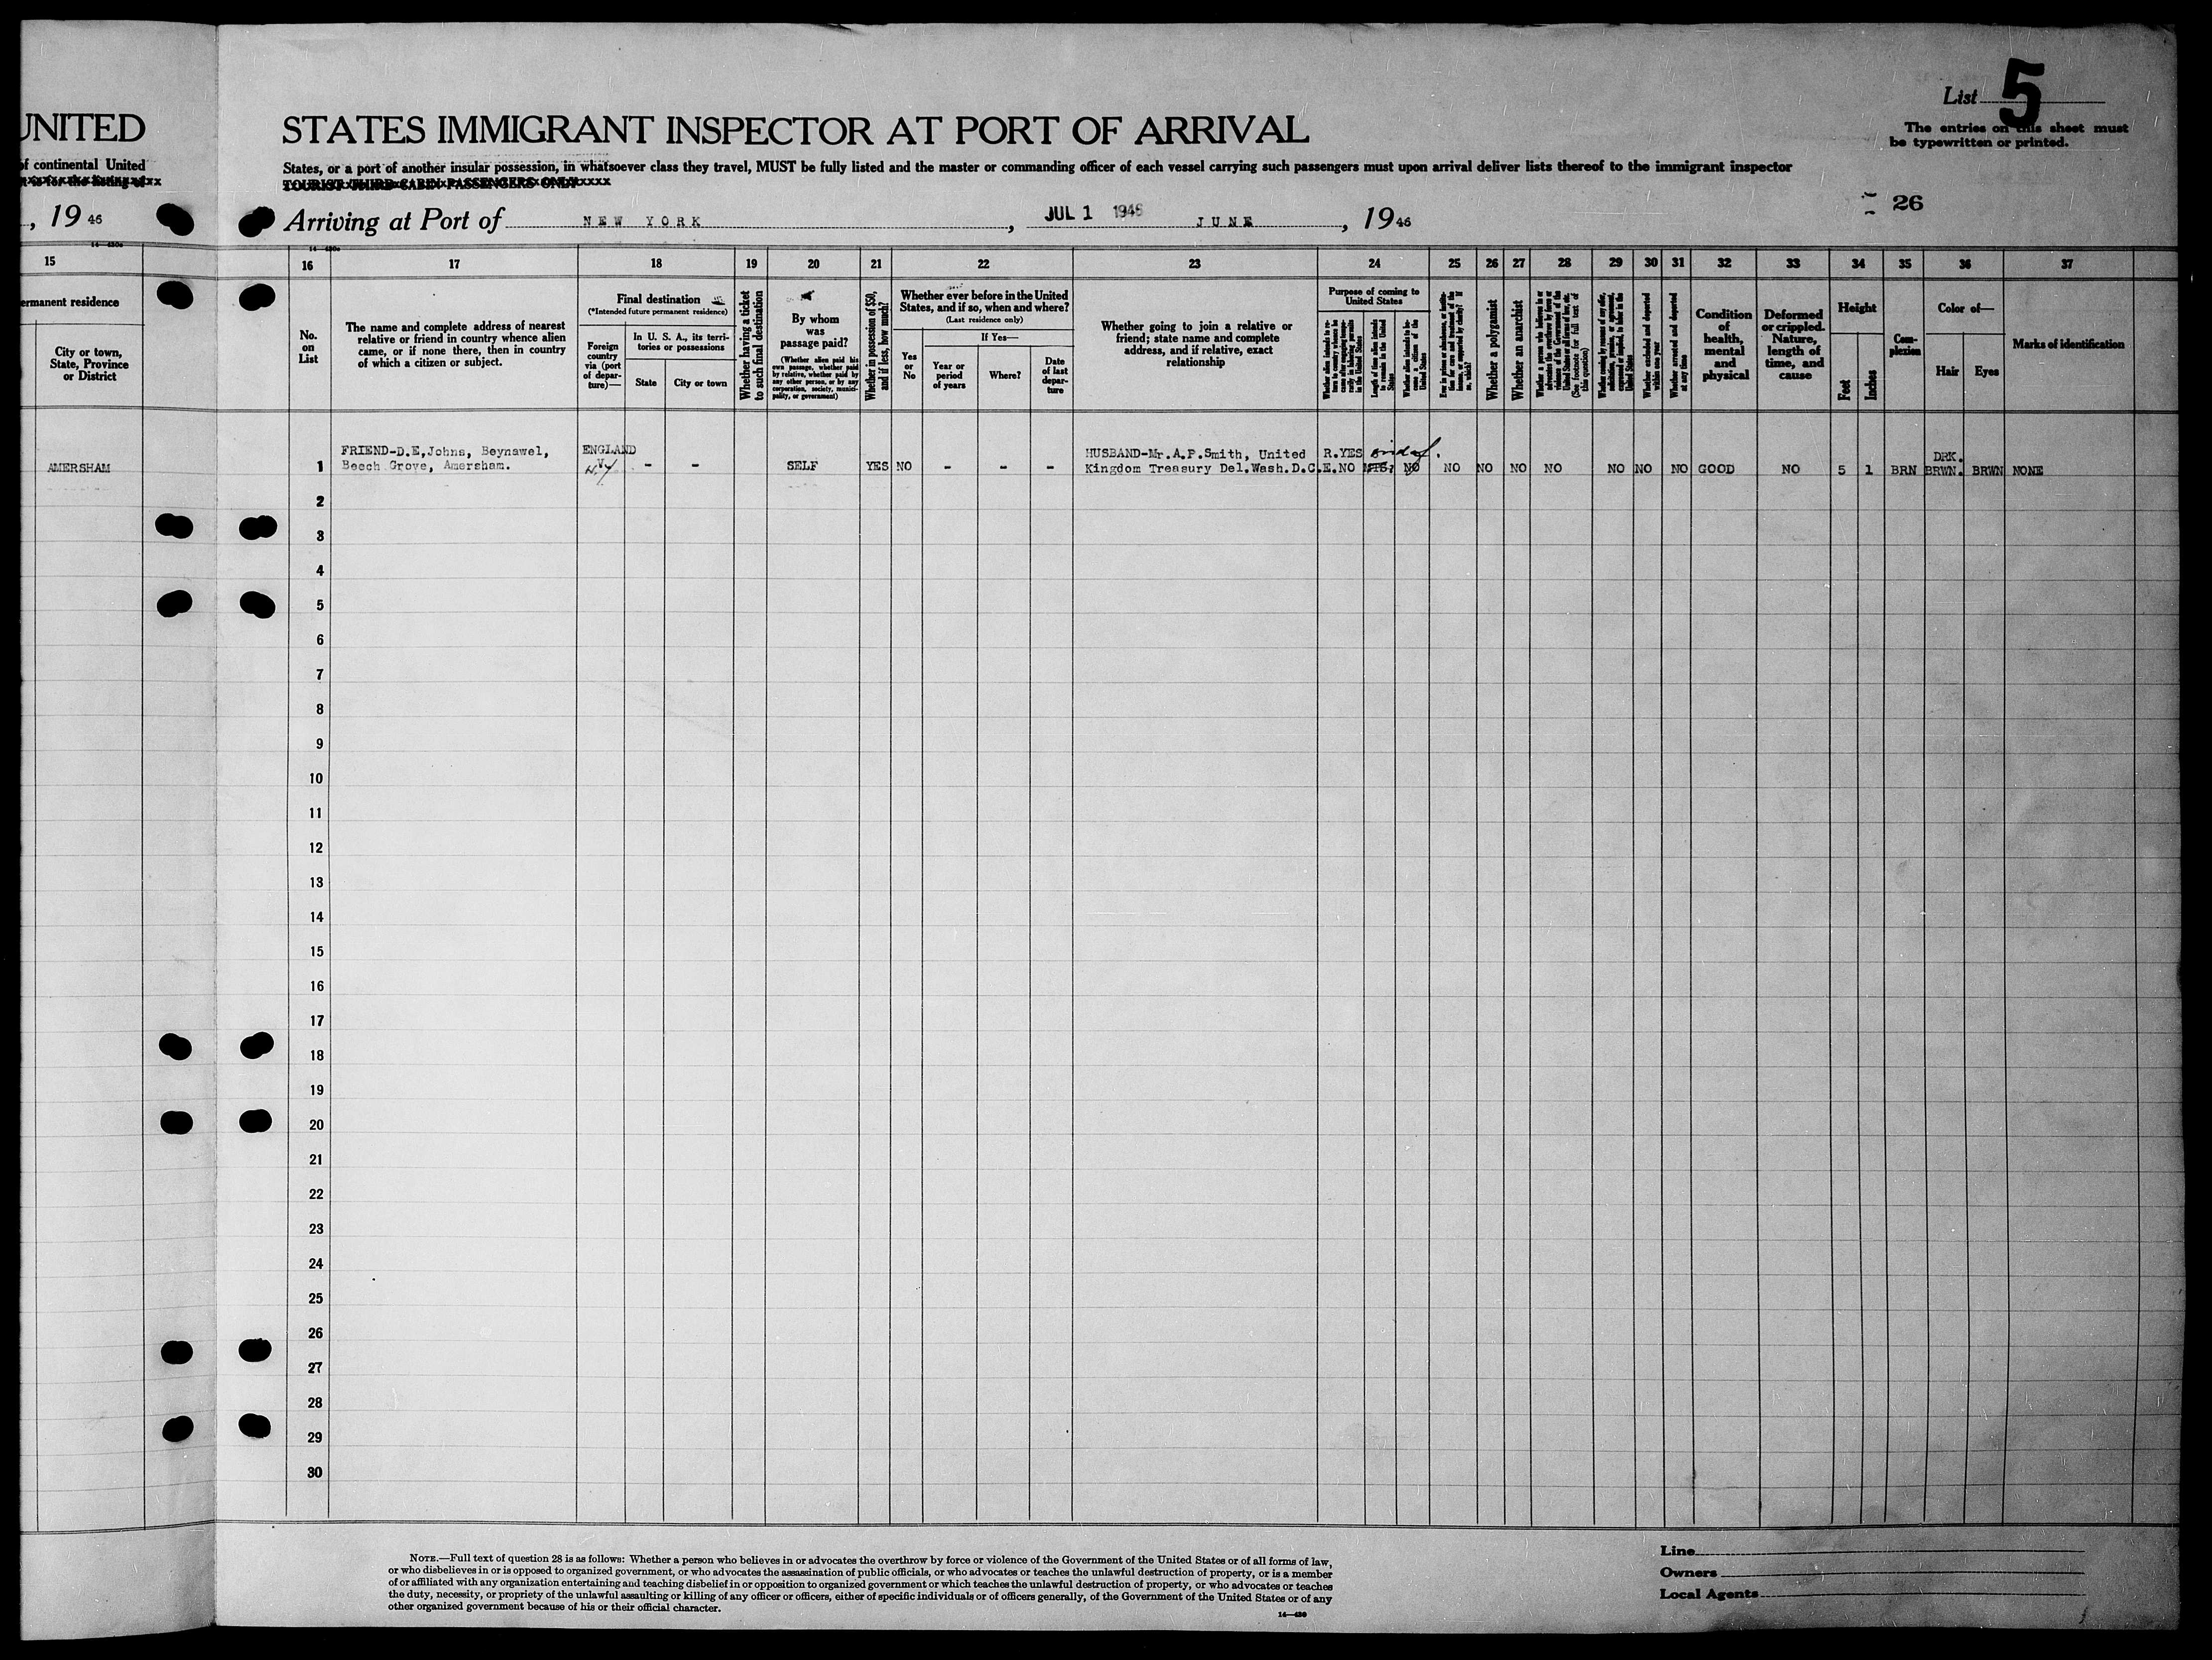 UNITED
of continental United
, 19 46
15
ermanent residence
City or town,
State, Province
or District
AMERSHAM
List 5
The entries on this sheet must
be typewritten or printed.
STATES IMMIGRANT INSPECTOR AT PORT OF ARRIVAL
States, or a port of another insular possession, in whatsoever class they travel, MUST be fully listed and the master or commanding officer of each vessel carrying such passengers must upon arrival deliver lists thereof to the immigrant inspector
TOURIST THIRD CABIN PASSENGERS ONLY
Arriving at Port of NEW YORK, JUL 1 1946 JUNE, 19 46
26
16 17 18 19 20 21 22 23 24 25 26 27 28 29 30 31 32 33 34 35 36 37
No.
on
List
The name and complete address of nearest
relative or friend in country whence alien
came, or if none there, then in country
of which a citizen or subject.
Final destination
(*Intended future permanent residence)
Foreign
country
via (port
of depar-
ture)—
In U. S. A., its terri-
tories or possessions
State
City or town
Whether having a ticket
to such final destination
By whom
was
passage paid?
(Whether alien paid his
own passage, whether paid
by relative, whether paid by
any other person, or by any
corporation, society, munici-
pality, or government)
Whether in possession of $50,
and if less, how much?
Whether ever before in the United
States, and if so, when and where?
(Last residence only)
Yes
or
No
If Yes—
Year or
period
of years
Where?
Date
of last
depar-
ture
Whether going to join a relative or
friend; state name and complete
address, and if relative, exact
relationship
Purpose of coming to
United States
Length of time alien intends
to remain in the United
States
Whether alien intends to be-
come a citizen of the
United States
Whether a polygamist
Whether an anarchist
(See footnote for full text of
this question)
Whether excluded and deported
within one year
Whether arrested and deported
at any time
Condition
of
health,
mental
and
physical
Deformed
or crippled.
Nature,
length of
time, and
cause
Height
Feet
Inches
Com-
plexion
Color of—
Hair
Eyes
Marks of identification
FRIEND-D.E,Johns, Beynawel, ENGLAND HUSBAND-Mr.A.P.Smith, United R.YES
DRK.
1 Beech Grove, Amersham. N.Y - - SELF YES NO - - - Kingdom Treasury Del.Wash.D.C.E.NO NO NO NO NO NO NO NO NO GOOD NO 5 1 BRN BRWN. BRWN NONE
2
3
4
5
6
7
8
9
10
11
12
13
14
15
16
17
18
19
20
21
22
23
24
25
26
27
28
29
30
NOTE.—Full text of question 28 is as follows: Whether a person who believes in or advocates the overthrow by force or violence of the Government of the United States or of all forms of law,
or who disbelieves in or is opposed to organized government, or who advocates the assassination of public officials, or who advocates or teaches the unlawful destruction of property, or is a member
of or affiliated with any organization entertaining and teaching disbelief in or opposition to organized government or which teaches the unlawful destruction of property, or who advocates or teaches
the duty, necessity, or propriety of the unlawful assaulting or killing of any officer or officers, either of specific individuals or of officers generally, of the Government of the United States or of any
other organized government because of his or their official character.
14—430
Line
Owners
Local Agents